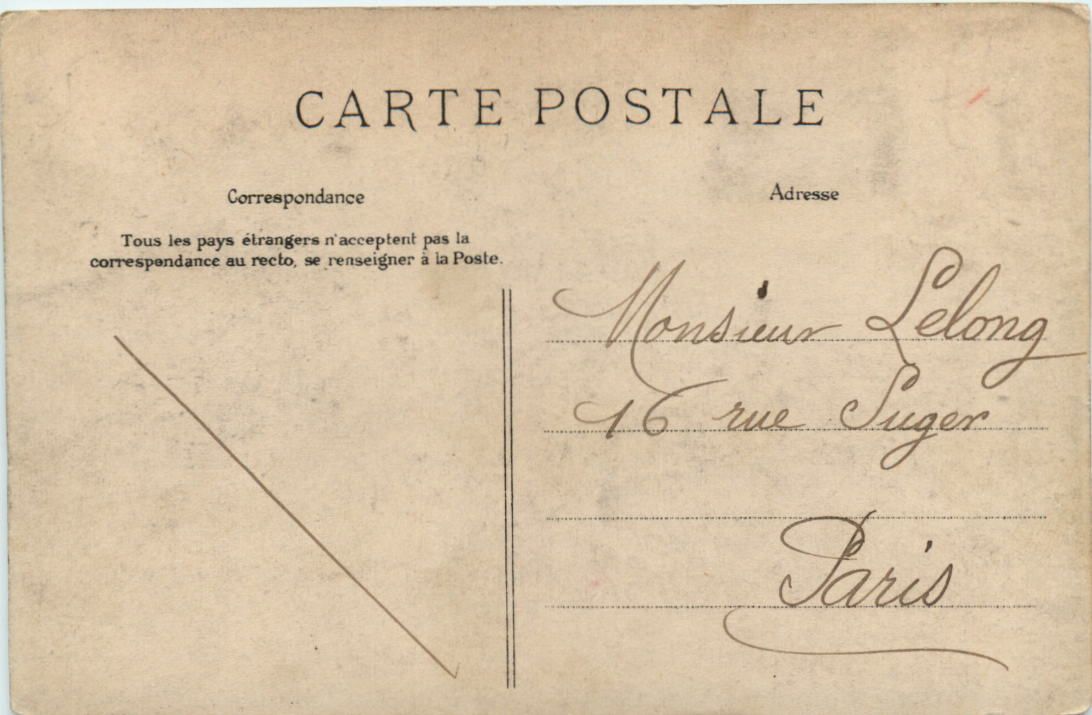 CARTE POSTALE
Correspondance
Tous les pays étrangers n'acceptent pas la
correspondance au recto, se renseigner à la Poste.
Adresse
Monsieur Lelong
16 rue Suger
Paris